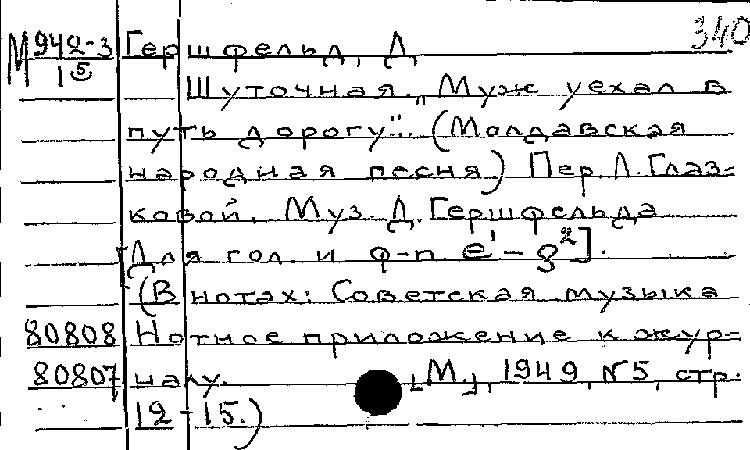 340
М 942-3 Гершфельд, Д.
15 Шуточная. „Муж уехал в
путь дорогу". (Молдавская
народная песня) Пер. Л. Глаз-
ковой. Муз. Д. Гершфельда
[Для гол. и ф-п e¹ - g²].
(В нотах: Советская музыка
80808 Нотное приложение к жур-
80807 налу. [М.], 1949, №5, стр.
12-15.)